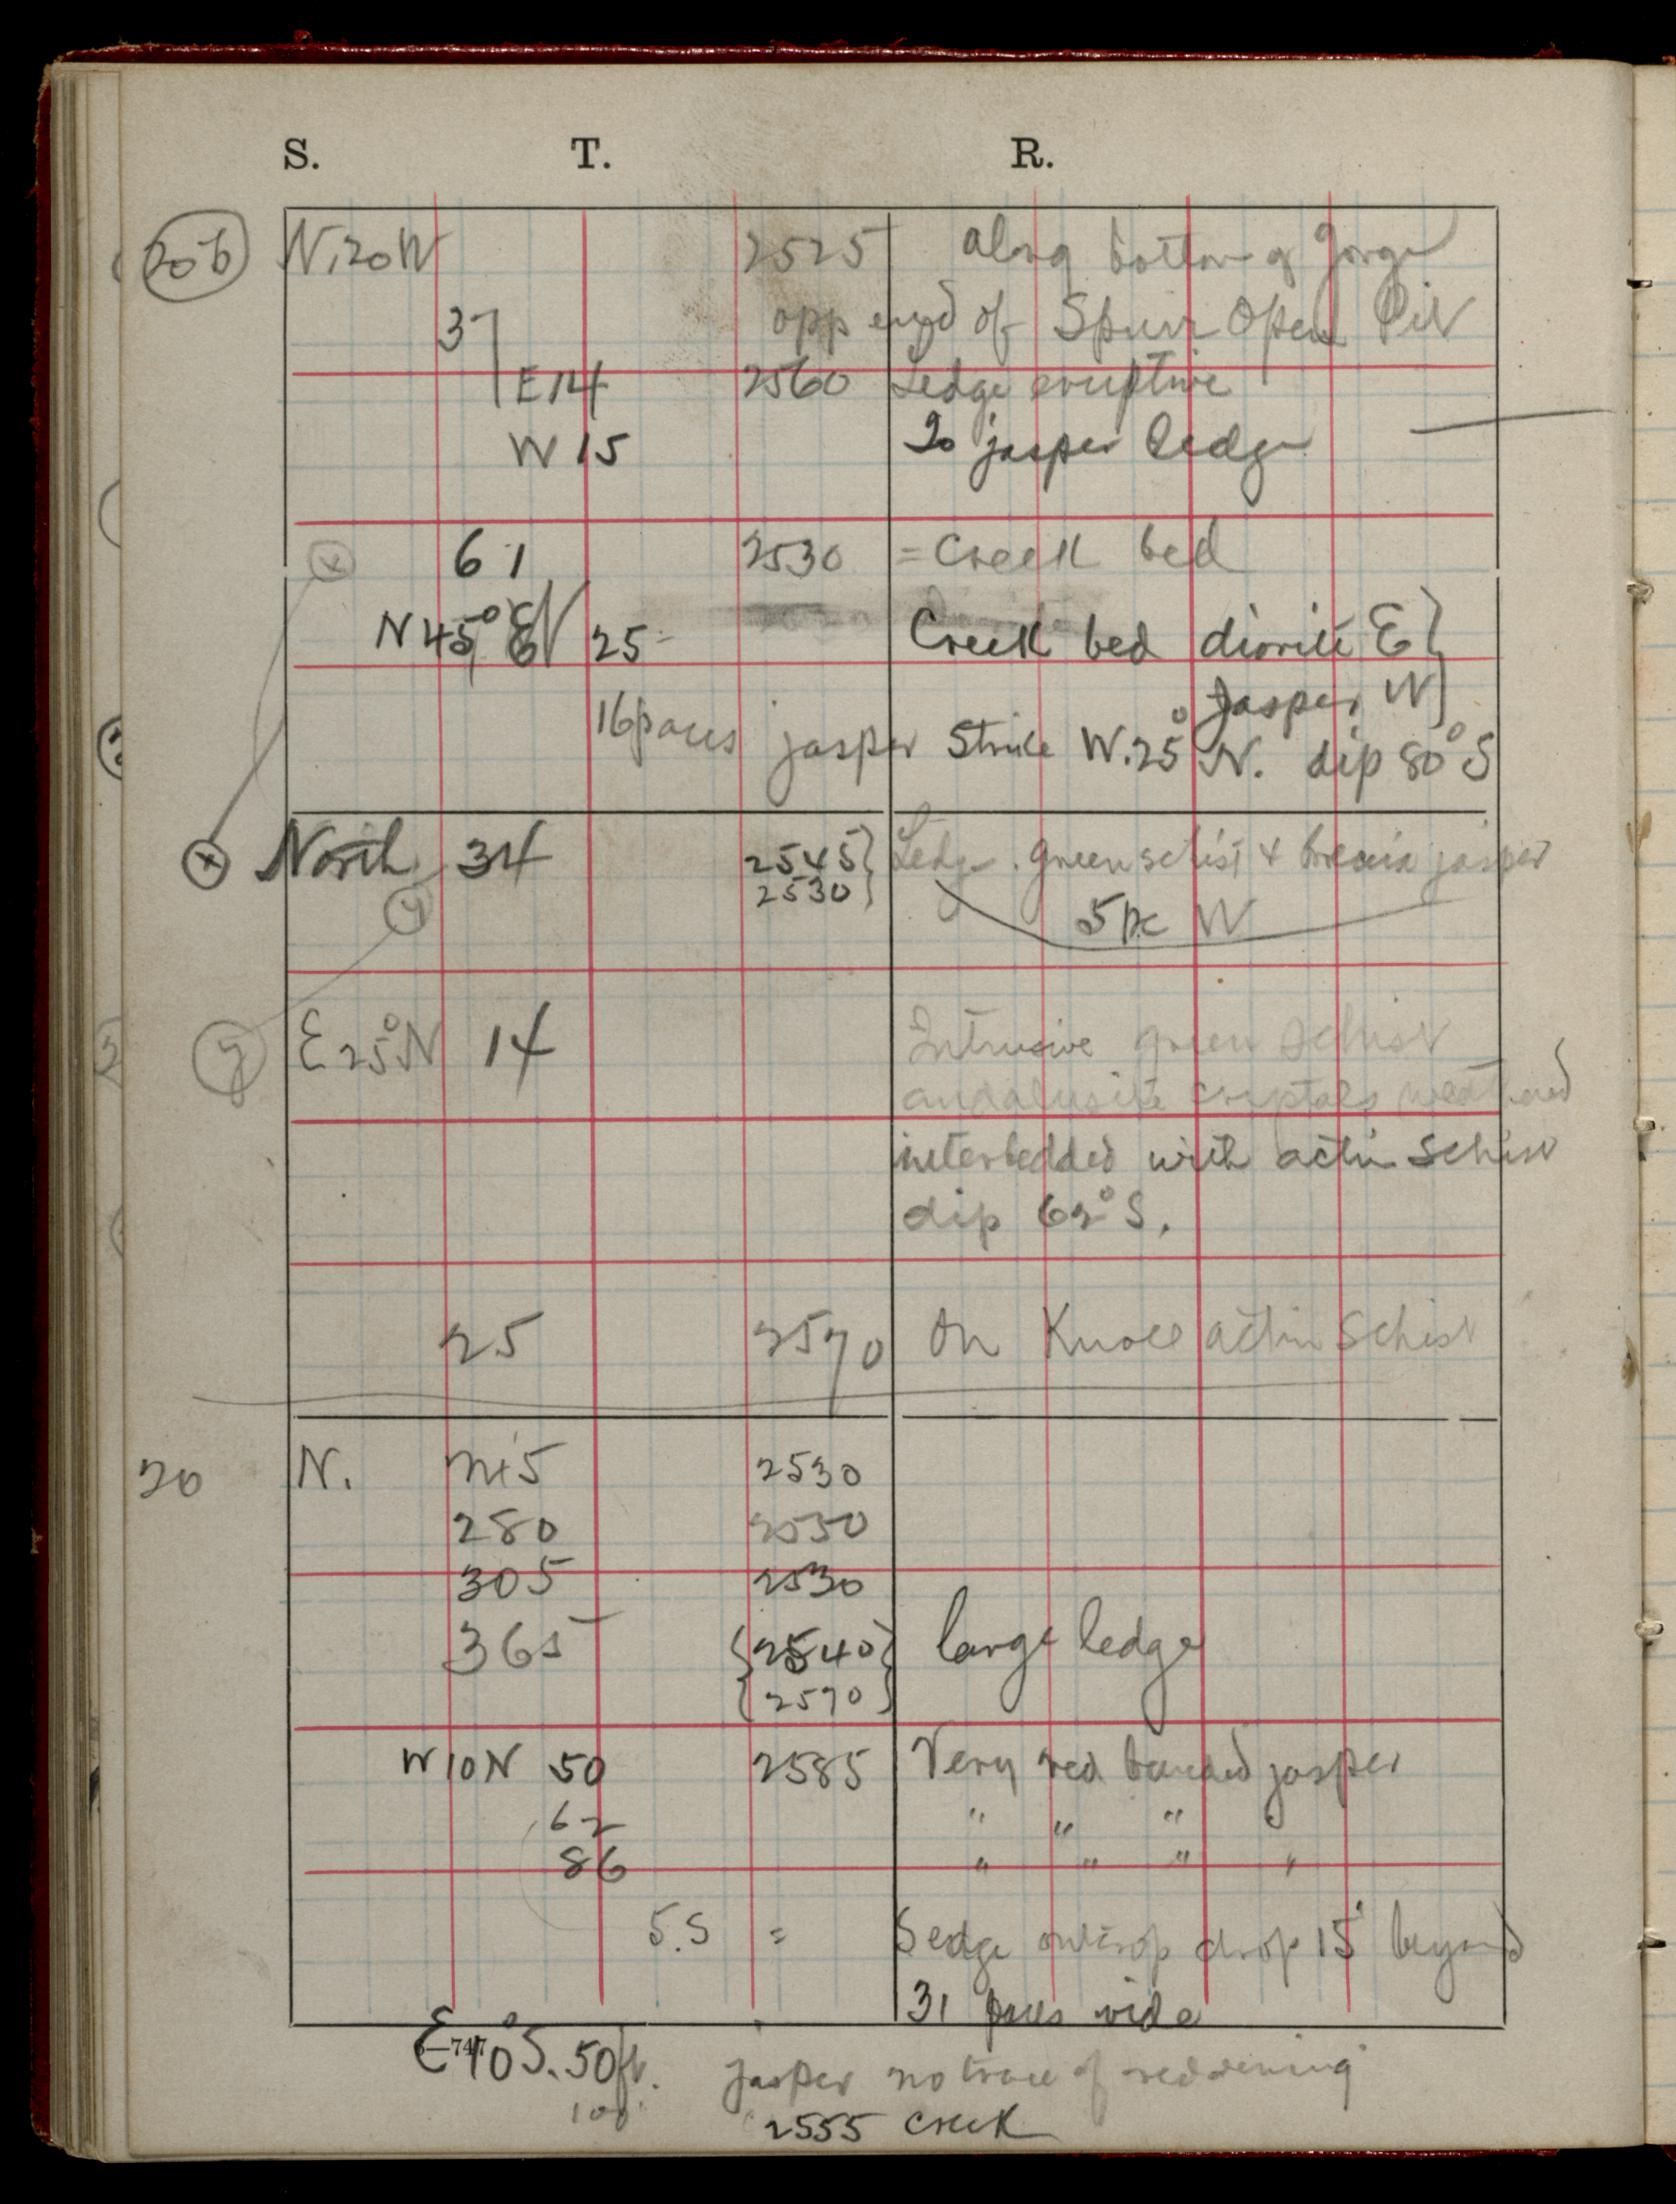 S. T. R.
20b N.20W 2525 along bottom of gorge
37 opp end of Spurr Open Pit
E14 2560 Ledge eruptive
W 15 20 jasper ledge
x 61 2530 = Creek bed
N 45° 25 Creek bed diorite E }
Jasper W }
16 paces jasper Strike W.25° N. dip 80° S
x North 34 2545 } Ledge. green schist & breccia jasper
y 2530 } 5 pc W
y E 25° N 14 Intrusive green schist
andalusite crystals weathered
interbedded with actin schist
dip 62° S.
25 2570 On Knoll actin schist
20 N. 2530
280 2530
305 2530
365 { 2540 } large ledge
{ 2570 }
W 10 N 50 2585 Very red banded jasper
62 " " "
86 " " " "
5.S = Ledge outcrop drop 15' beyond
31 paces wide
E 10° S. 50 ft. jasper no trace of reddening
6—747
100' 2555 creek